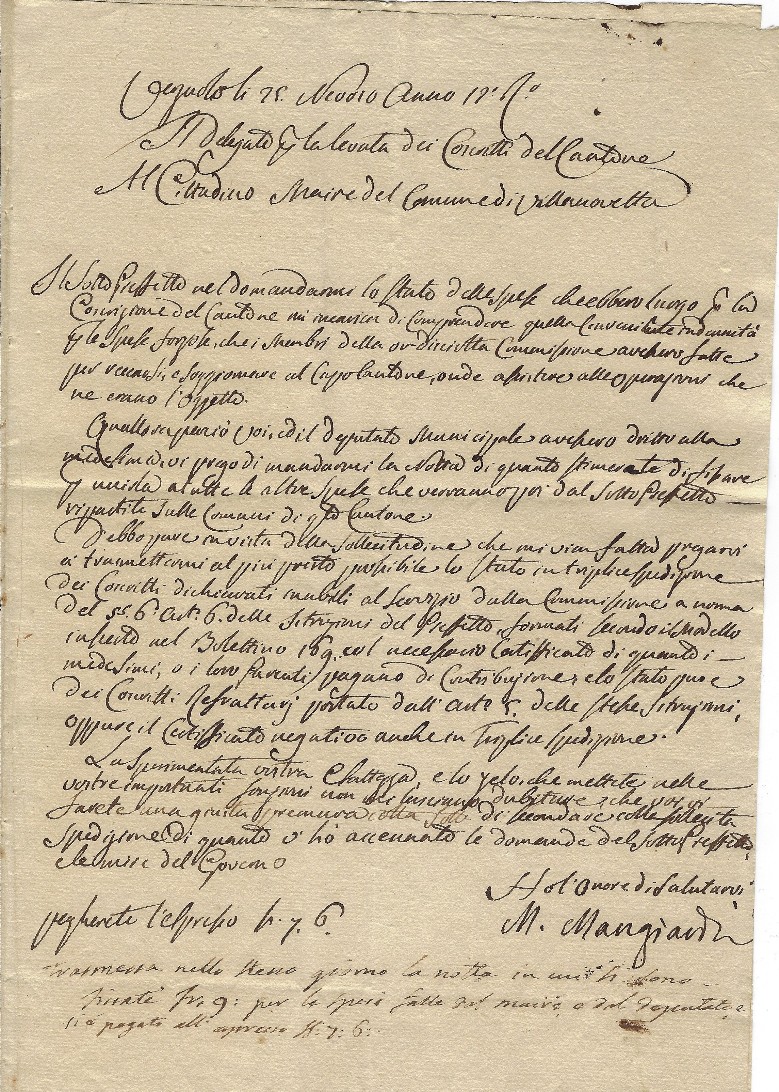 li 25. Nevoso Anno 12. R.o
Il Delegato p la levata dei Coscritti del Cantone
Al Cittadino Maire del Comune di Villanovetta
Il Sotto Prefetto nel domandarmi lo stato delle spese che ebbero luogo p la
Coscrizione del Cantone mi incarica di Comprendere quella Conveniente indennità
p le spese forzose, che i Membri della or disciolta Commissione avessero fatte
per recarsi, e soggiornare al Capo Cantone, onde assistere alle operazioni che
ne erano l'oggetto.
Qualora perciò Voi, ed il deputato Municipale avessero dritto alla
medesima, vi prego di mandarmi la Notta di quanto stimerete di fissare
p unirla a tutte le altre spese che verranno poi dal Sotto Prefetto
ripartite sulle Comuni di q.to Cantone.
Debbo pure in vista della sollecitudine che mi vien fatta pregarvi
a trasmettermi al più presto possibile lo stato in triplice spedizione
dei Coscritti dichiarati inabili al Servizio dalla Commissione a norma
del §§. 6. art. 6. delle Istruzioni del Prefetto, formati secondo il Modello
inserto nel Bolettino 169. col necessario Certificato di quanto i
medesimi, o i loro Parenti pagano di Contribuzione, e lo stato pure
dei Coscritti Refrattarj portato dall'art. 5. delle stesse Istruzioni,
oppure il Certificato negativo anche in Triplice spedizione.
La sperimentata vostra Esattezza, e lo zelo che mettete nelle
vostre importanti funzioni non mi lasciano dubitare, che voi vi
farete una giusta premura di secondare colla sollecita
spedizione di quanto v'ho accennato le domande del Sotto Prefetto,
e le mire del Governo
Ho l'Onore di Salutarvi
pagherete l'espresso fr. 7. 6.
M. Mangiardi
trasmessa nello stesso giorno la notta in cui si sono
fissate fr. 9: per le spese fatte dal maire, e dal deputato, e
si è pagato all'espresso fr. 7. 6.